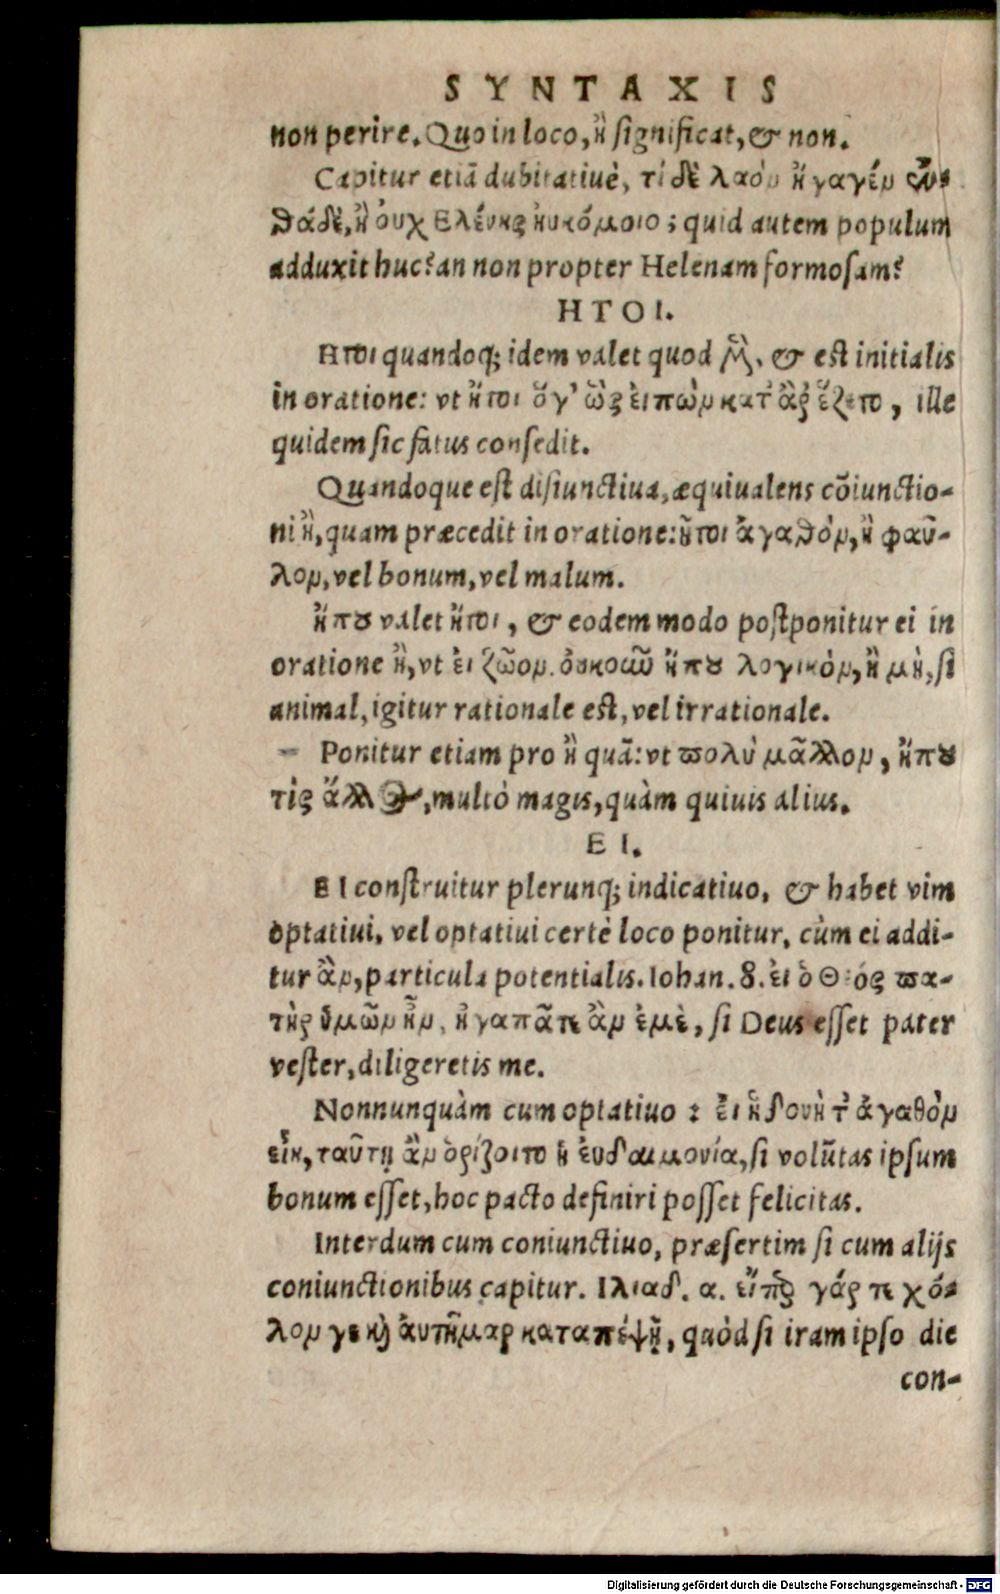 SYNTAXIS
non perire. Quo in loco, ἢ significat, & non.
Capitur etiã dubitatiuè, τί δὲ λαὸν ἤγαγεν ἐν-
θάδε, ἢ ὀυχ Ελένης ἠυκόμοιο; quid autem populum
adduxit huc? an non propter Helenam formosam?
ΗΤΟΙ.
Ητοι quandoq; idem valet quod μὲν. & est initialis
in oratione: vt ἤτοι ὅγ' ὣς ἐιπὼν κατ' ἂρ ἕζετο, ille
quidem sic fatus consedit.
Quandoque est disiunctiua, æquiualens cõiunctio-
ni ἢ, quam præcedit in oratione: ἤτοι ἀγαθὸν, ἢ φαῦ-
λον, vel bonum, vel malum.
ἤπου valet ἤτοι, & eodem modo postponitur ei in
oratione ἢ, vt ἐι ζῶον. ὀυκοῦν ἤπου λογικὸν, ἢ μὴ, si
animal, igitur rationale est, vel irrationale.
Ponitur etiam pro ἢ quã: vt πολὺ μᾶλλον, ἤπου
τὶς ἄλλος, multò magis, quàm quiuis alius.
ΕΙ.
ΕΙ construitur plerunq; indicatiuo, & habet vim
optatiui, vel optatiui certè loco ponitur, cùm ei addi-
tur ἂν, particula potentialis. Iohan. 8. ἐι ὁ Θεός πα-
τὴρ ὑμῶν ἦν, ἠγαπᾶτε ἂν ἐμὲ, si Deus esset pater
vester, diligeretis me.
Nonnunquàm cum optatiuo: ἐι ἡδονὴ τ' ἀγαθὸν
εἴη, ταῦτῃ ἂν ὁρίζοιτο ἡ ἐυδαιμονία, si volũtas ipsum
bonum esset, hoc pacto definiri posset felicitas.
Interdum cum coniunctiuo, præsertim si cum alijs
coniunctionibus capitur. Ιλιαδ. α. εἴπερ γάρ τε χό-
λον γε καὶ ἀυτῆμαρ καταπέψῃ, quòd si iram ipso die
con-
Digitalisierung gefördert durch die Deutsche Forschungsgemeinschaft - DFG